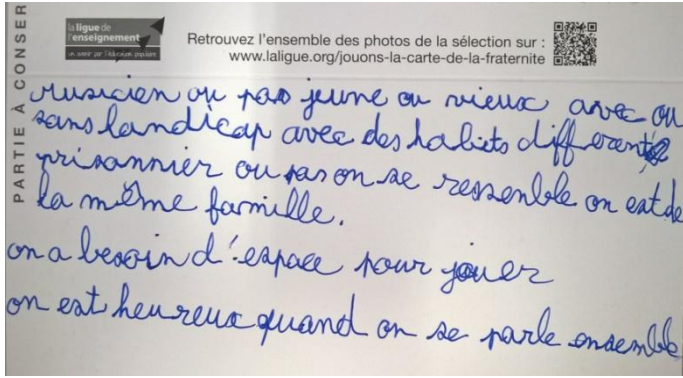 la ligue de
l'enseignement
un avenir par l'éducation populaire
Retrouvez l'ensemble des photos de la sélection sur :
www.laligue.org/jouons-la-carte-de-la-fraternite
PARTIE À CONSER
musicien ou pas jeune ou vieux avec ou
sans handicap avec des habits différents
prisonnier ou pas on se ressenble on est de
la même famille.
on a besoin d'espace pour jouer
on est heureux quand on se parle ensemble